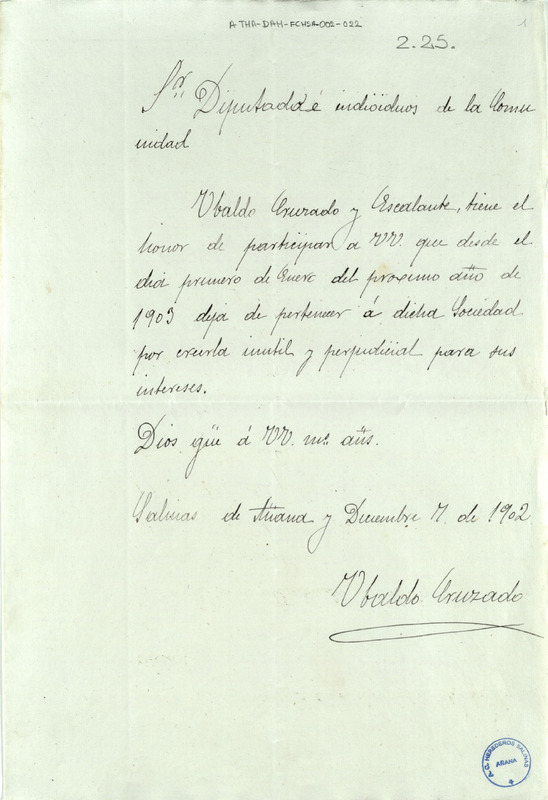 ATHA-DAH-FCHSA-002-022
1
2.25.
Sr. Diputado é indiöiduos de la Comu
nidad
Ubaldo Cruzado y Escalante, tiene el
honor de participar a VV. que desde el
dia primero de Enero del proximo año de
1903 deja de pertenecer á dicha Sociedad
por creerla inutil y perjudicial para sus
intereses.
Dios güe á VV. ms. añs.
Salinas de Añana y Diciembre 7. de 1902
Ubaldo Cruzado
A.C. HEREDEROS SALINAS
AÑANA